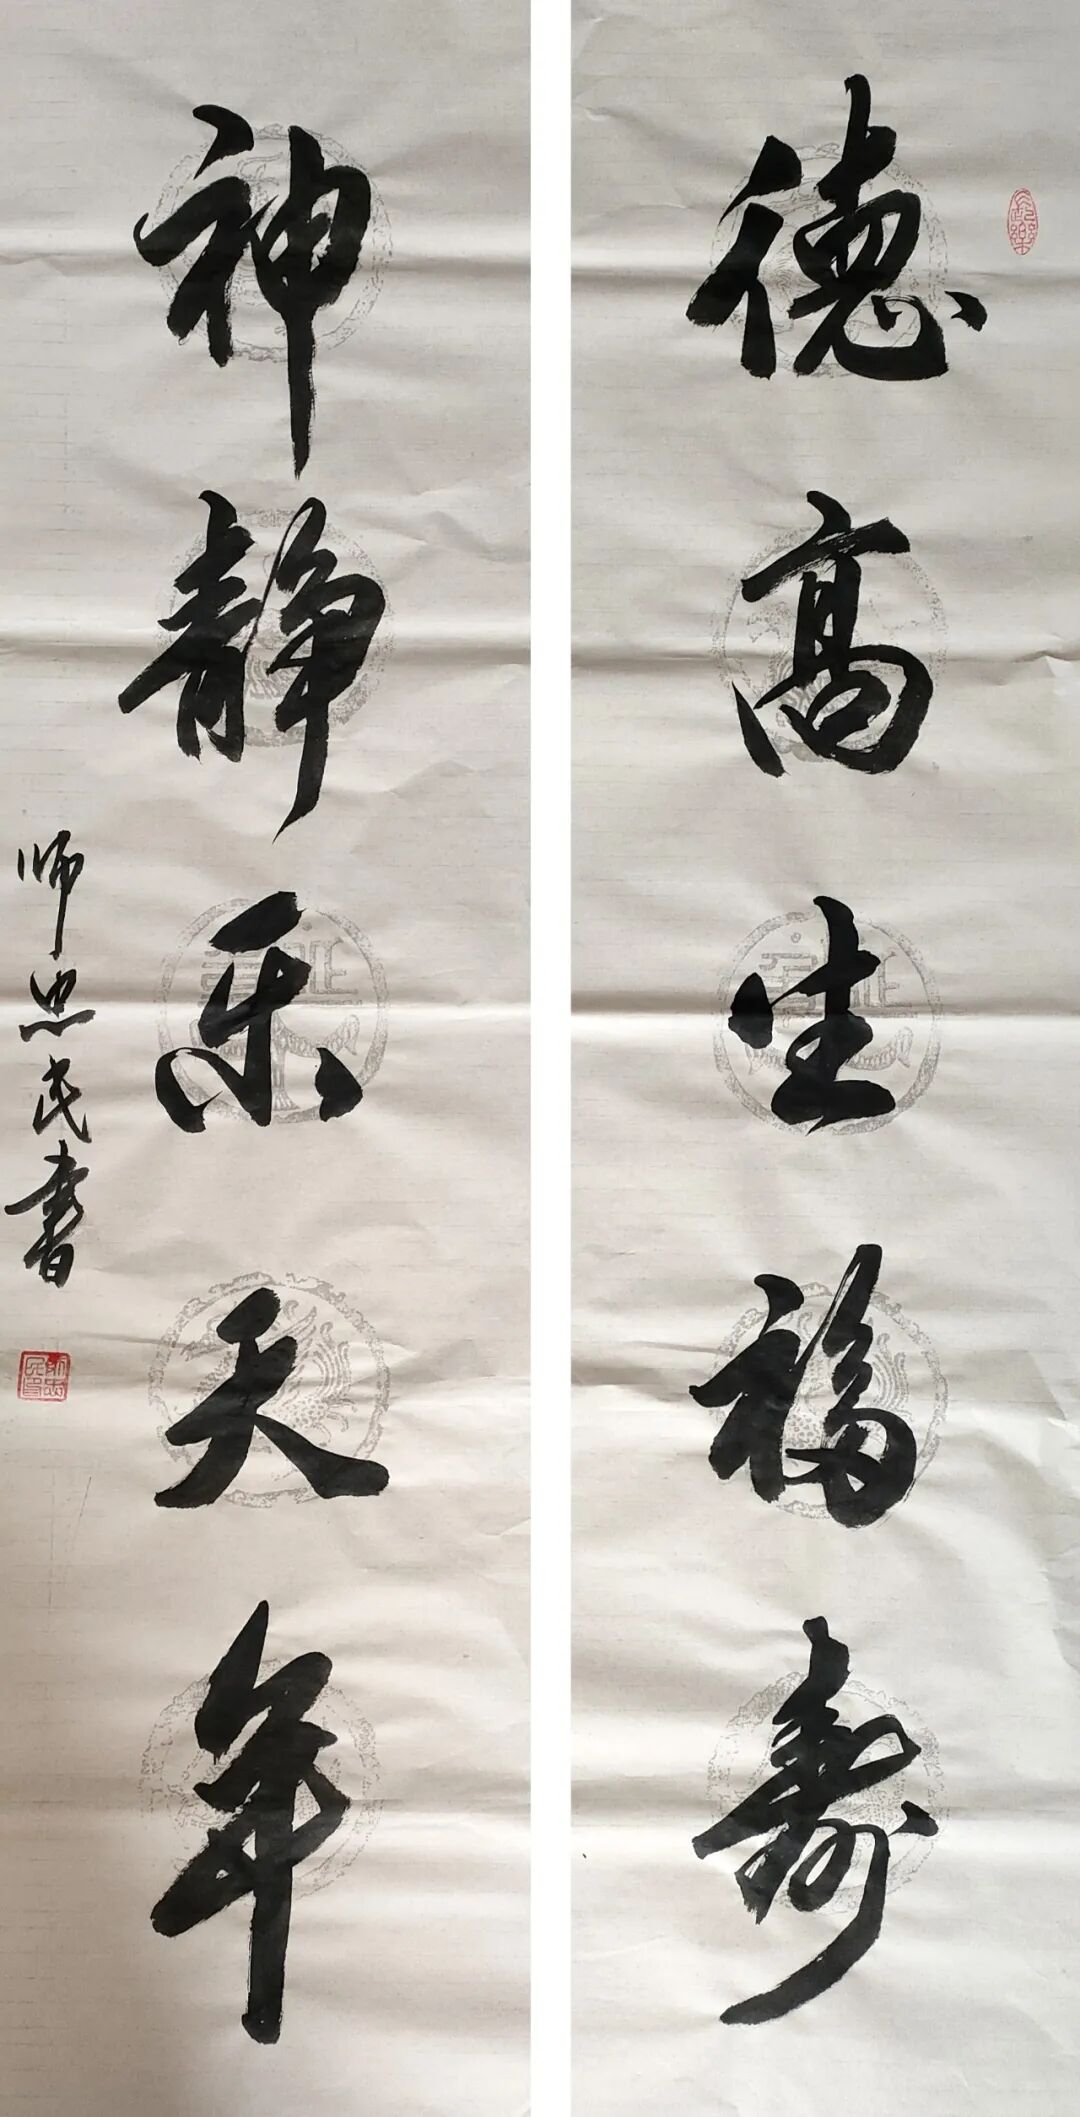 德高生福寿
神静乐天年
师忠民书